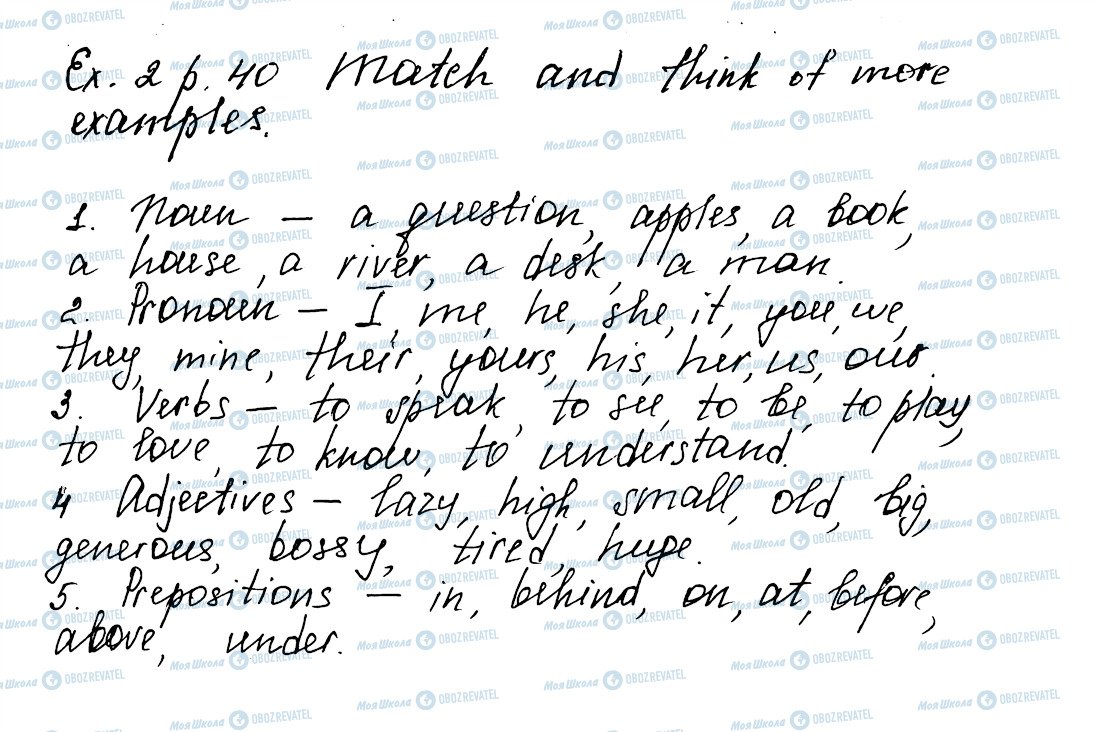 Ex. 2 p. 40 Match and think of more
examples.
1. Noun – a question, apples, a book,
a house, a river, a desk, a man
2. Pronoun – I, me, he, she, it, you, we,
they, mine, their, yours, his, her, us, our.
3. Verbs – to speak, to see, to be, to play,
to love, to know, to understand.
4 Adjectives – lazy, high, small, old, big,
generous, bossy, tired, huge.
5. Prepositions – in, behind, on, at, before,
above, under.
МояШкола OBOZREVATEL